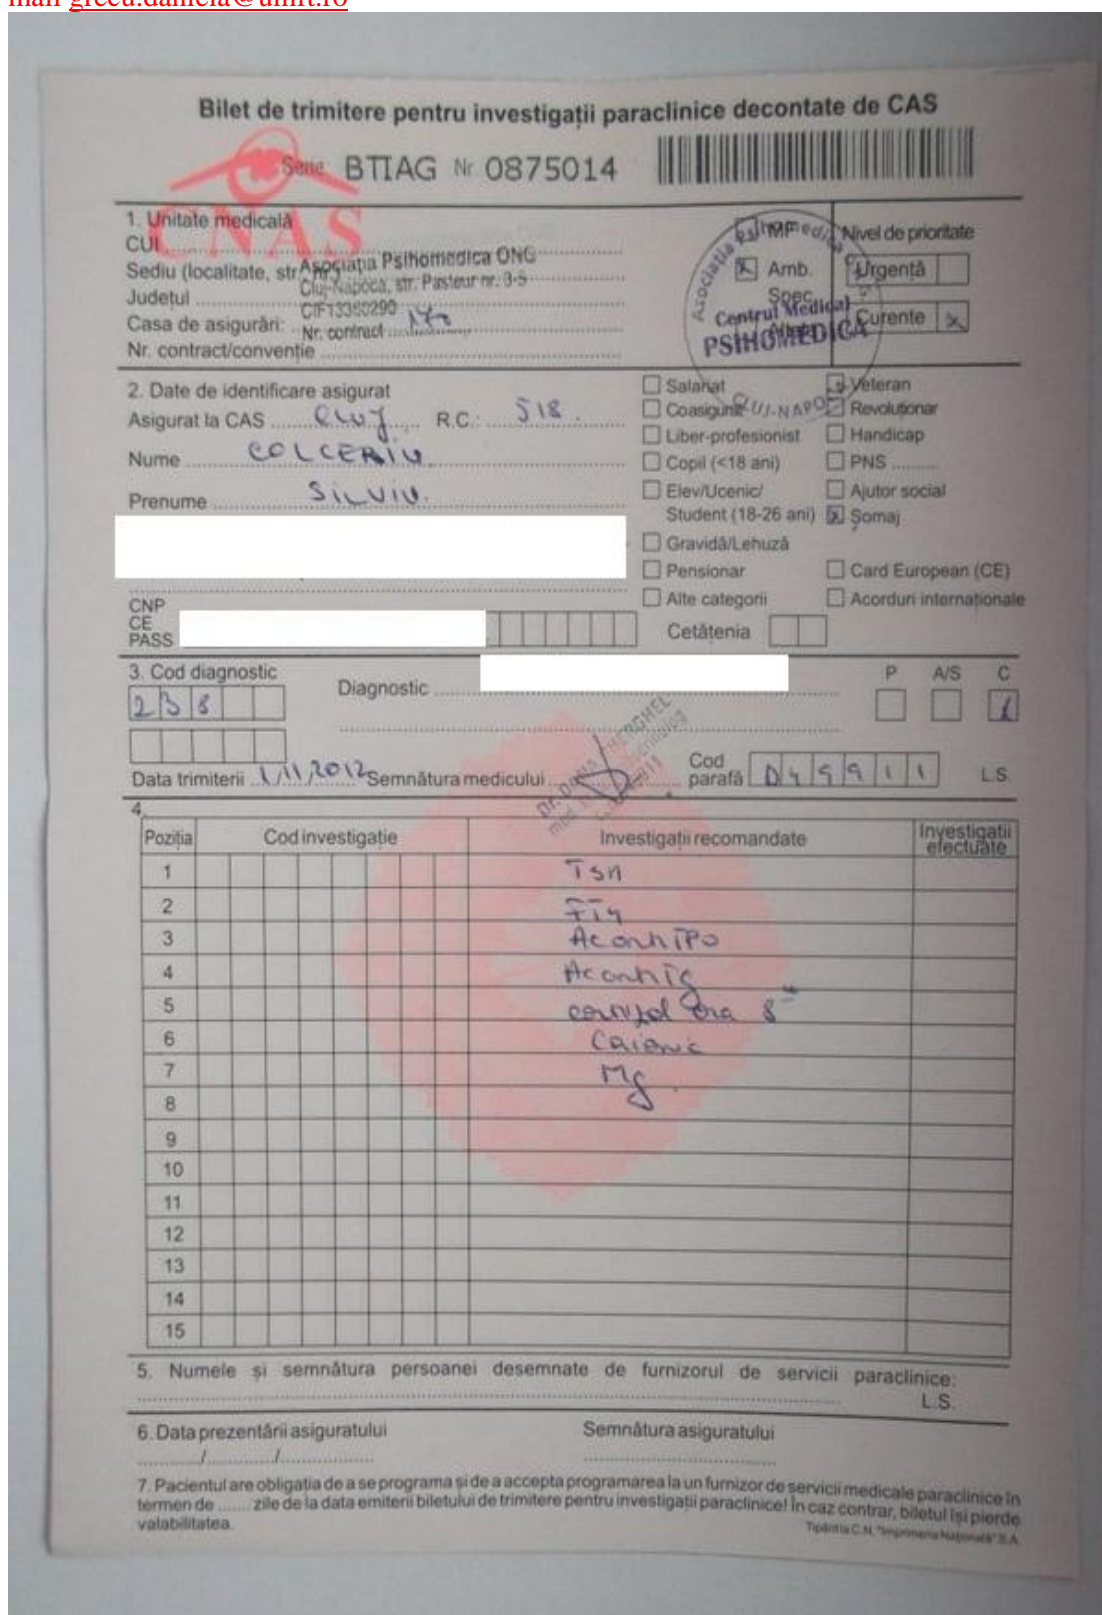 mail grecu.daniela@umft.ro
Bilet de trimitere pentru investigații paraclinice decontate de CAS
Serie BTIAG Nr 0875014
CNAS
1. Unitate medicală
CUI
Asociația Psihomedica ONG
Sediu (localitate, str.
Cluj-Napoca, str. Pasteur nr. 3-5
Județul
CIF13380290
Casa de asigurări:
Nr. contract
Nr. contract/convenție
MF
Amb.
Spec.
Nivel de prioritate
Urgență
Curente x
Asociația Psihomedica
Centrul Medical
PSIHOMEDICA
CLUJ-NAPO
2. Date de identificare asigurat
Asigurat la CAS Cluj R.C.: 518
Nume COLCERIU
Prenume SILVIU.
Salariat
Coasigurat
Liber-profesionist
Copil (<18 ani)
Elev/Ucenic/
Student (18-26 ani)
Gravidă/Lehuză
Pensionar
Alte categorii
Veteran
Revoluționar
Handicap
PNS
Ajutor social
x Șomaj
Card European (CE)
Acorduri internaționale
CNP
CE
PASS
Cetățenia
3. Cod diagnostic
238
Diagnostic
P A/S C
Data trimiterii 1/11/2012 Semnătura medicului
Cod
parafă D49911 L.S.
4.
Poziția Cod investigație Investigații recomandate Investigații efectuate
1 TSH
2 FT4
3 Ac anti TPO
4 Ac anti Tg
5 cortizol ora 8
6 Ca ionic
7 Mg
8
9
10
11
12
13
14
15
5. Numele și semnătura persoanei desemnate de furnizorul de servicii paraclinice:
L.S.
6. Data prezentării asiguratului Semnătura asiguratului
7. Pacientul are obligația de a se programa și de a accepta programarea la un furnizor de servicii medicale paraclinice în
termen de ....... zile de la data emiterii biletului de trimitere pentru investigații paraclinice! În caz contrar, biletul își pierde
valabilitatea.
Tipărit la C.N. "Imprimeria Națională" S.A.